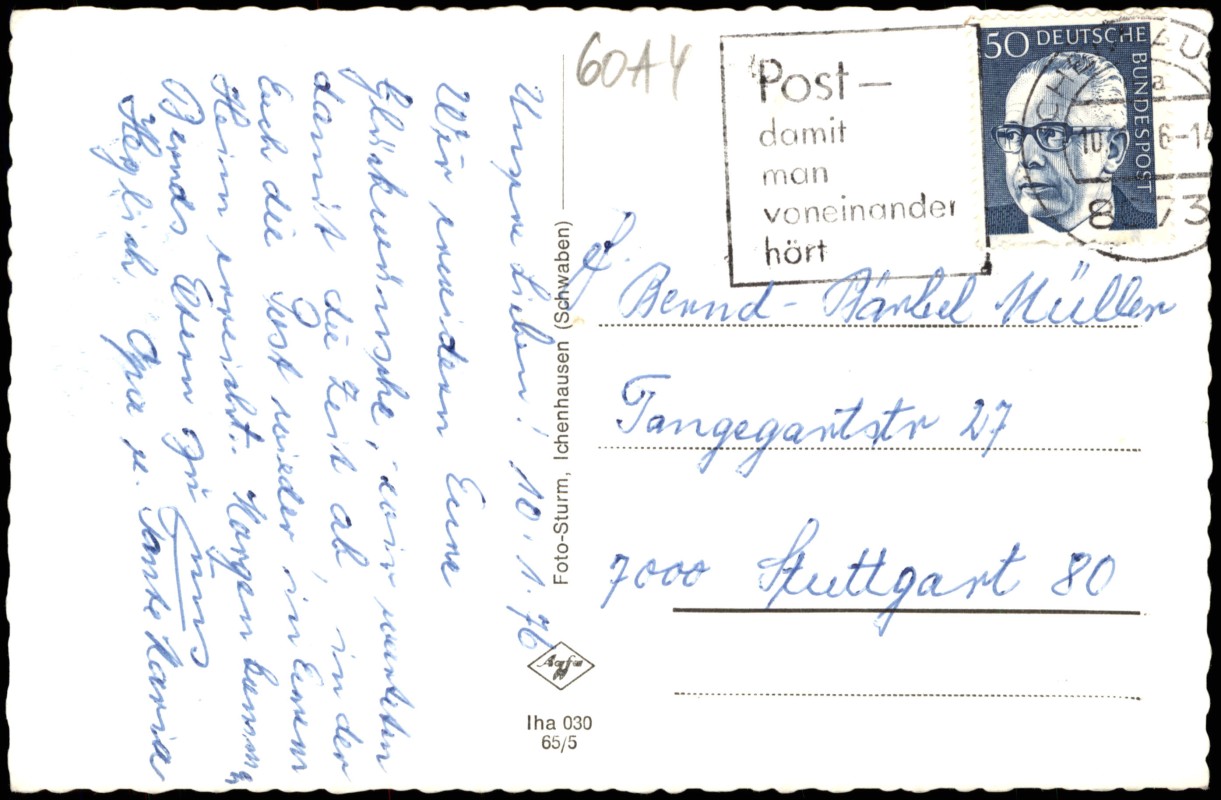 Unsre Lieben! 10.1.76
Wir erwidern Eure
Glückwünsche, wir warten
damit die Zeit ab, in der
Euch die Post wieder in Eurem
Heim erreicht. Morgen kommen
Bernds Eltern zu uns
Herzlich Opa u. Tante Maria
Foto-Sturm, Ichenhausen (Schwaben)
Agfa
Iha 030
65/5
60A4
Post –
damit
man
voneinander
hört
50 DEUTSCHE
BUNDESPOST
a
10. 6-14
8 73
Bernd - Bärbel Müller
Tangegartstr 27
7000 Stuttgart 80